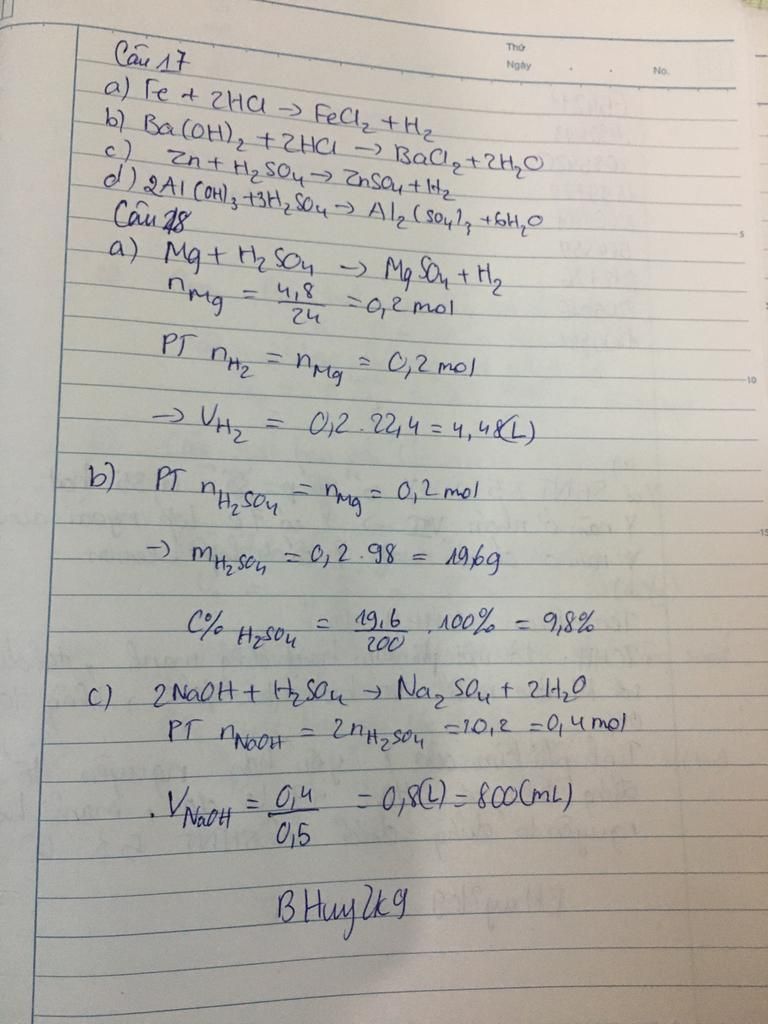 Thứ
Ngày . . No.
Câu 17
a) Fe + 2HCl → FeCl₂ + H₂
b) Ba(OH)₂ + 2HCl → BaCl₂ + 2H₂O
c) Zn + H₂SO₄ → ZnSO₄ + H₂
d) 2Al(OH)₃ + 3H₂SO₄ → Al₂(SO₄)₃ + 6H₂O
Câu 18
a) Mg + H₂SO₄ → MgSO₄ + H₂
n Mg = 4,8/24 = 0,2 mol
5
PT n H₂ = n Mg = 0,2 mol
10
→ V H₂ = 0,2 . 22,4 = 4,48(L)
b) PT n H₂SO₄ = n Mg = 0,2 mol
15
→ m H₂SO₄ = 0,2 . 98 = 19,6g
C% H₂SO₄ = 19,6/200 . 100% = 9,8%
c) 2NaOH + H₂SO₄ → Na₂SO₄ + 2H₂O
PT n NaOH = 2n H₂SO₄ = 20,2 = 0,4 mol
. V NaOH = 0,4/0,5 = 0,8(L) = 800(mL)
BHuy2k9